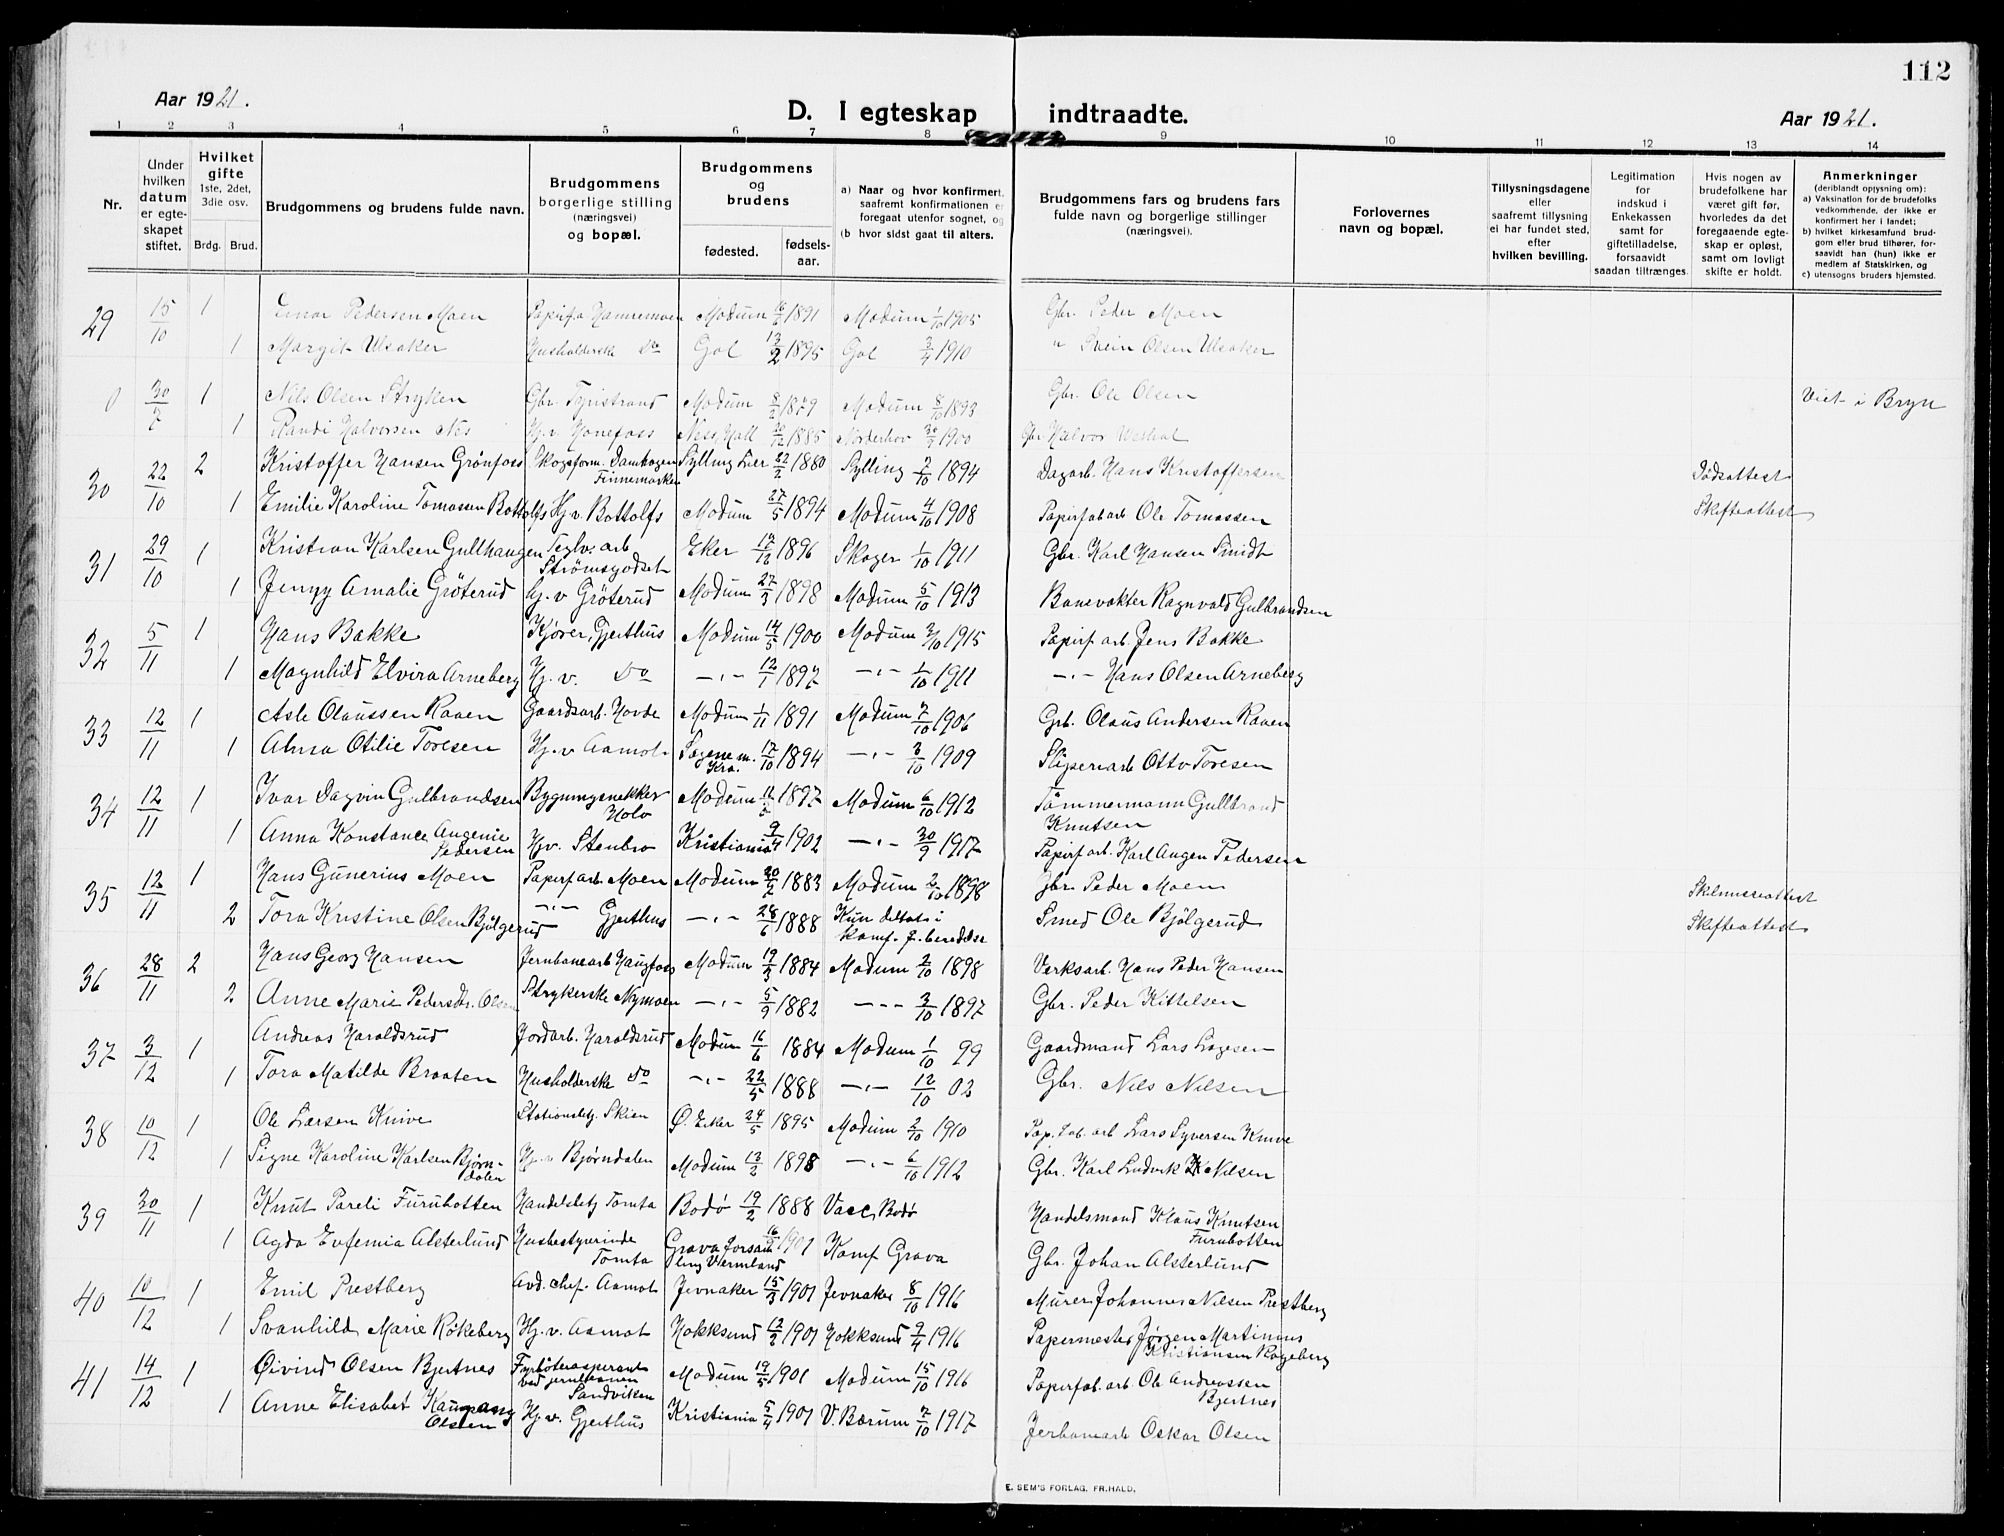 112
Aar 1921.
D. I egteskap indtraadte.
Aar 1921.
1 2 3 4 5 6 7 8 9 10 11 12 13 14
Nr.
Under hvilken datum er egteskapet stiftet.
Hvilket gifte 1ste, 2det, 3die osv.
Brdg. Brud.
Brudgommens og brudens fulde navn.
Brudgommens borgerlige stilling (næringsvei) og bopæl.
Brudgommens og brudens
fødested. fødselsaar.
a) Naar og hvor konfirmert, saafremt konfirmationen er foregaat utenfor sognet, og
(b hvor sidst gaat til alters.
Brudgommens fars og brudens fars fulde navn og borgerlige stillinger (næringsvei).
Forlovernes navn og bopæl.
Tillysningsdagene eller saafremt tillysning ei har fundet sted, efter hvilken bevilling.
Legitimation for indskud i Enkekassen samt for giftetilladelse, forsaavidt saadan tiltrænges.
Hvis nogen av brudefolkene har været gift før, hvorledes da det foregaaende egteskap er opløst, samt om lovligt skifte er holdt.
Anmerkninger (deriblandt opysning om):
a) Vaksination for de brudefolks vedkommende, der ikke er konfirmert her i landet;
b) hvilket kirkesamfund brudgom eller brud tilhører, forsaavidt han (hun) ikke er medlem af Statskirken, og
c) utensogns bruders hjemsted.
29 15/10 1 Einar Pedersen Moen Papirfa Hamremoen Modum 16/6 1891 Modum 1/10 1905 Gbr. Peder Moen
1 Margit Ulsaker Husholderske Do Gol 13/2 1895 Gol 3/4 1910 " Svein Olsen Ulsaker
0 30/7 1 Nils Olsen Stryken Gbr. Tyristrand Modum 8/2 1879 Modum 8/10 1893 Gbr. Ole Olsen Viet i Bryn
1 Randi Halvorsen Nes Hj.v. Hønefoss Ness, Hall 1885 Norderhov 30/9 1900 Gbr Halvor
30 22/10 2 Kristoffer Hansen Grönfoss Skogsform. Damhagen Finnemarken Sylling Lier 22/2 1880 Sylling 7/10 1894 Dagarb. Hans Kristoffersen Dødsattest
1 Emilie Karoline Tomassen Bottolfs Hj.v. Bottolfs Modum 27/5 1894 Modum 4/10 1908 Papirfabarb Ole Tomassen Skifteattest
31 29/10 1 Kristian Karlsen Gullhaugen Teglv. arb Strømsgodset Eker 17/12 1896 Skoger 1/10 1911 Gbr. Karl Hansen Smidt
1 Jenny Amalie Gröterud Hj. v Gröterud Modum 27/3 1898 Modum 5/10 1913 Banevokter Ragnvald Gulbrandsen
32 5/11 1 Hans Bakke Kjører, Gjerthus Modum 14/5 1900 Modum 3/10 1915 Papirf arb. Jens Bakke
1 Magnhild Elvira Arneberg Hj. v. Do —"— 12/1 1897 —"— 1/10 1911 —"— Hans Olsen Arneberg
33 12/11 1 Asle Olaussen Raaen Gaardsarb. Hovde Modum 1/11 1891 Modum 7/10 1906 Grb. Olaus Andersen Raaen
1 Alma Otilie Toresen Hj. v Aamot Sagene m. Kra. 17/10 1894 —"— 3/10 1909 Sliperiarb Otto Toresen
34 12/11 1 Ivar Dagvin Gulbrandsen Bygningsnekker Holo Modum 11/5 1897 Modum 6/10 1912 Tömmermann Gullbrand Knutsen
1 Anna Konstance Augenie Pedersen Hjv. Stenbro Kristiania 9/4 1902 —"— 30/9 1917 Papirf arb. Karl Augen Pedersen
35 12/11 1 Hans Gunerius Moen Papirf arb. Moen Modum 20/2 1883 Modum 2/10 1898 Gbr Peder Moen Skilsmisseattest
2 Tora Kristine Olsen Bjölgerud —"— Gjerthus —"— 28/6 1888 Kun deltat i Komf. f. beredelse Smed Ole Bjölgerud Skifteattest
36 28/11 2 Hans Georg Hansen Jernbanearb Haugfoss Modum 19/3 1884 Modum 2/10 1898 Verksarb. Hans Peder Hansen
2 Anne Marie Pedersdtr. Olsen Strykerske Nymoen —"— 5/9 1882 —"— 3/10 1897 Gbr. Peder Kittelsen
37 3/12 1 Andreas Haraldsrud Jordarb. Haraldsrud Modum 16/6 1884 Modum 1/10 99 Gaardmand Lars Lagesen
1 Tora Matilde Braaten Husholderske Do —"— 22/5 1888 —"— 12/10 02 Gbr. Nils Nilsen
38 10/12 1 Ole Larsen Knive Stationsbtj. Skien Ø. Eker 24/5 1895 Modum 2/10 1910 Pap. fab. arb Lars Syversen Knive
1 Signe Karoline Karlsen Bjørndalen Hj. v Bjørndalen Modum 13/2 1898 —"— 6/10 1912 Gbr. Karl Ludvik Nilsen
39 30/11 1 Knut Pareli Furubotten Handelsbtj Tomta Bodø 19/2 1888 Vacc, Bodø Handelsmand Klaus Knutsen Furubotten
1 Agda Eufemia Alsterlund Husbestyrerinde Tomta Grava forsamling Vermland 16/ 1901 Komf Grava Gbr. Johan Alsterlund
40 10/12 1 Emil Prestberg Avd. chef. Aamot Jevnaker 15/3 1901 Jevnaker 8/10 1916 Murer Johannes Nilsen Prestberg
1 Svanhild Marie Røkeberg Hj. v. Aamot Hokksund 12/2 1901 Hokksund 9/4 1916 Papermester Jørgen Martinius Kristiansen Røgeberg
41 14/12 1 Øivind Olsen Bjertnes Fyrbøteraspirant ved jernbanen Sandviken Modum 19/5 1901 Modum 15/10 1916 Papirfab. arb. Ole Andreassen Bjertnes
1 Anne Elisabet Kaupang Olsen Hj. v. Gjerthus Kristiania 5/4 1901 V. Bærum 7/10 1917 Jerbanearb Oskar Olsen
E. SEM'S FORLAG, FR.HALD.